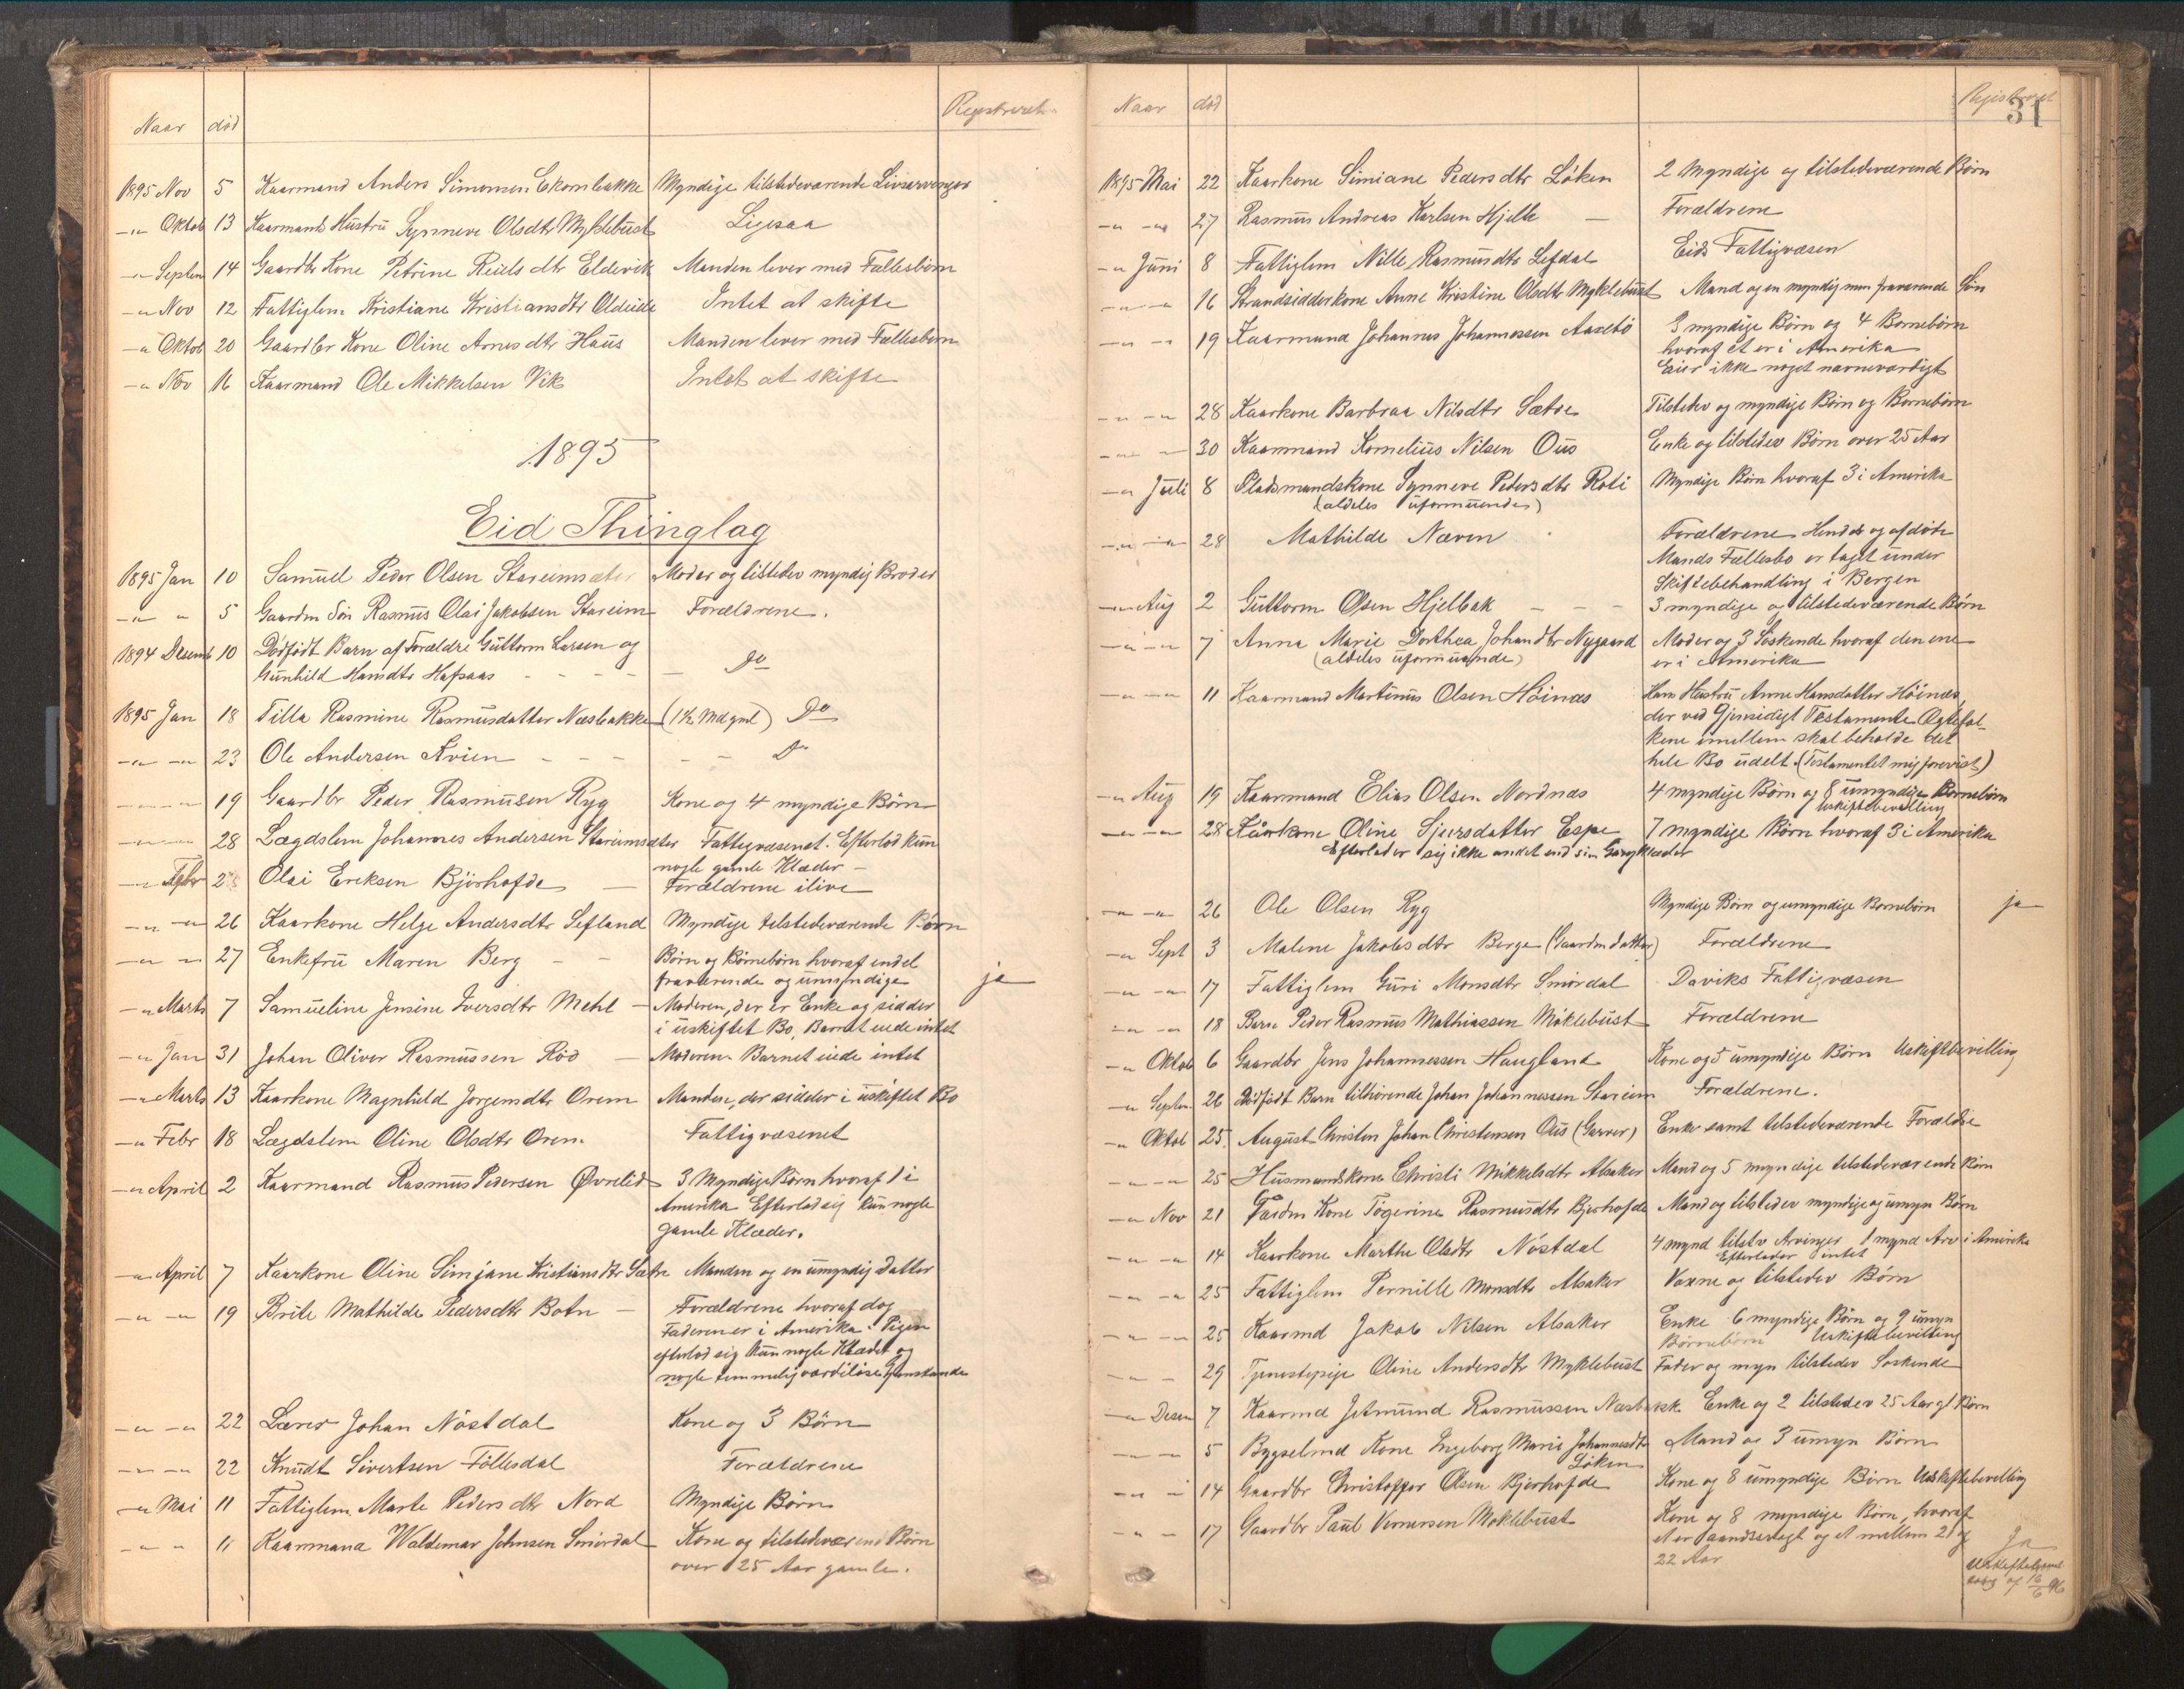 Naar død Registreret
1895 Nov 5 Kaarmand Anders Simonsen Ekornbakke Myndige tilstedeværende Livsarvinger
-"- Oktob 13 Kaarmands Hustru Synneve Olsdtr Myklebust Ligesaa
-"- Septem 14 Gaardbr Kone Petrine Reiels dtr Eldevik Manden lever med Fællesbørn
-"- Nov 12 Fattiglem Kristiane Kristiansdtr Oldeide Intet at skifte
-"- Oktob 20 Gaardbr Kone Oline Arnesdtr Haus Manden lever med Fællesbørn
-"- Nov 16 Kaarmand Ole Mikkelsen Vik Intet at skifte
1895
Eid Thinglag
1895 Jan 10 Samuel Peder Olsen Stareimsæter Moder og tilstedev myndig Broder
-"- " 5 Gaardm Søn Rasmus Olai Jakobsen Stareim Forældrene.
1894 Desemb 10 Dødfødt Barn af Forældre Guttorm Larsen og
Gunhild Hansdtr Hafsaas - - - - Do
1895 Jan 18 Tilla Rasmine Rasmusdatter Næsbakke (1½ Md gml) Do
-"- -"- 23 Ole Andersen Kvien - - - - - Do
-"- -"- 19 Gaardbr Peder Rasmusen Ryg Kone og 4 myndige Børn
-"- -"- 28 Lægdslem Johannes Andersen Stareimsæter Fattigvæsenet. Efterlod kun
nogle gamle Klæder -
-"- Febr 2 Olai Eriksen Bjørhofde - Forældrene ilive
-"- -"- 26 Kaarkone Helge Andersdtr Sefland Myndige tilstedeværende Børn
-"- -"- 27 Enkefru Maren Berg - - Børn og Børnebørn hvoraf endel
fraværende og umyndige ja
-"- Marts 7 Samueline Jensine Iversdtr Mehl - Moderen, der er Enke og sidder
i uskiftet Bo, Barnet eiede intet
-"- Jan 31 Johan Oliver Rasmussen Rød - Moderen Barnet eiede intet
-"- Marts 13 Kaarkone Magnhild Jørgensdtr Orem Manden, der sidder i uskiftet Bo
-"- Febr 18 Lægdslem Oline Olsdtr Orem Fattigvæsenet
-"- April 2 Kaarmand Rasmus Pedersen Øvrelid 3 Myndige Børn hvoraf 1 i
Amerika Efterlod sig kun nogle
gamle Klæder.
-"- April 7 Kaarkone Oline Simjane Kristiansdtr Sætre Manden og en umyndig Datter
-"- -"- 19 Brite Mathilde Pedersdtr Botn - Forældrene hvoraf dog
Faderen er i Amerika. Pigen
efterlod sig kun nogle Klæder og
nogle temmelig værdiløse Gjenstande
-"- -"- 22 Lærer Johan Nøstdal Kone og 3 Børn
-"- -"- 22 Knudt Sivertsen Føllesdal Forældrene
-"- Mai 11 Fattiglem Marte Pedersdtr Nord Myndige Børn
-"- " 11 Kaarmand Waldemar Johnsen Smørdal Kone og tilstedeværende Børn
over 25 Aar gamle.
Naar død Registreret
31
1895 Mai 22 Kaarkone Simiane Pedersdtr Løken 2 Myndige og tilstedeværende Børn
-"- -"- 27 Rasmus Andreas Karlsen Hjelle - Forældrene
-"- Juni 8 Fattiglem Nille Rasmusdtr Lefdal Eids Fattigvæsen
-"- -"- 16 Strandsidderkone Anne Kristine Olsdtr Myklebust Mand og en myndig men fraværende Søn
-"- -"- 19 Kaarmand Johannes Johannessen Aasebø 3 myndige Børn og 4 Børnebørn
hvoraf et er i Amerika
Eier ikke noget nævneværdigt
-"- -"- 28 Kaarkone Barbraa Nilsdtr Sætre Tilstedev og myndige Børn og Børnebørn
-"- -"- 30 Kaarmand Kornelius Nilsen Ous Enke og tilstedev Børn over 25 Aar
-"- Juli 8 Pladsmandskone Synneve Petersdtr Roti Myndige Børn hvoraf 3 i Amerika
(aldeles uformuende)
-"- -"- 28 Mathilde Næven Forældrene Hendes og afdøde
Mands Fællesbo er taget under
Skiftebehandling i Bergen
-"- Aug 2 Guttorm Olsen Hjelbak - - - 3 myndige og tilstedeværende Børn
-"- -"- 7 Anna Marie Dorthea Johandtr Nygaard Moder og 3 Søskende hvoraf den ene
(aldeles uformuende) er i Amerika
-"- -"- 11 Kaarmand Martinus Olsen Høinæs Hans Hustru Anne Hansdatter Høinæs,
der ved Gjensidigt Testamente Ægtefol-
kene imellem skal beholde det
hele Bo udelt. (Testamentet mig forevist)
-"- Aug 19 Kaarmand Elias Olsen Nordnæs 4 myndige Børn og 8 umyndige Børnebørn
Uskiftebevilling
-"- -"- 28 Kaarkone Oline Sjursdatter Espe 7 myndige Børn hvoraf 3 i Amerika
Efterlader sig ikke andet end sin Gangklæder
-"- -"- 26 Ole Olsen Ryg Myndige Børn og umyndige Børnebørn ja
-"- Sept 3 Malene Jakobsdtr Berge (Gaardm datter) Forældrene
-"- -"- 17 Fattiglem Guri Monsdtr Smørdal Daviks Fattigvæsen
-"- -"- 18 Barn Peder Rasmus Mathiassen Møklebust Forældrene
-"- Oktob 6 Gaardbr Jens Johannessen Haugland Kone og 5 umyndige Børn Uskiftbevilling
-"- Septem 26 Dødfødt Barn tilhørende Johan Johannessen Stareim Forældrene.
-"- Oktob 25. August Christen Johan Christensen Ous (Garver) Enke samt tilstedeværende Forældre
-"- -"- 25 Husmandskone Christi Mikkelsdtr Alsaker Mand og 5 myndige tilstedeværende Børn
-"- Nov 21 Gaardm Kone Tøgerine Rasmusdtr Bjørhofde Mand og tilstedev myndige og umyn Børn
-"- -"- 14 Kaarkone Marthe Olsdtr Nøstdal 4 mynd tilstv Arvinger 1 mynd Arv i Amerika
Efterlader intet
-"- -"- 25 Fattiglem Pernille Monsdtr Alsaker Voxne og tilstedev Børn
-"- -"- 25 Kaarmd Jakob Nilsen Alsaker Enke 6 myndige Børn og 9 umyn
Børnebørn Uskiftebevilling
-"- - 29 Tjenestepige Oline Andersdtr Myklebust Fader og myn tilstedev Søskende
-"- Desem 7 Kaarmd Jetmund Rasmussen Næsbakk Enke og 2 tilstedev 25 Aar gl Børn
-"- -"- 5 Bygselmd Kone Ingeborg Marie Johannesdtr Mand og 3 umyn Børn
Løken
-"- -"- 14 Gaardbr Christoffer Olsen Bjørhofde Kone og 8 umyndige Børn Uskiftebevilling
-"- -"- 17 Gaardbr Paul Vernersen Møklebust Kone og 8 myndige Børn, hvoraf
et er aandssvagt og et mellem 21 og Ja
22 Aar
af 16/6 96